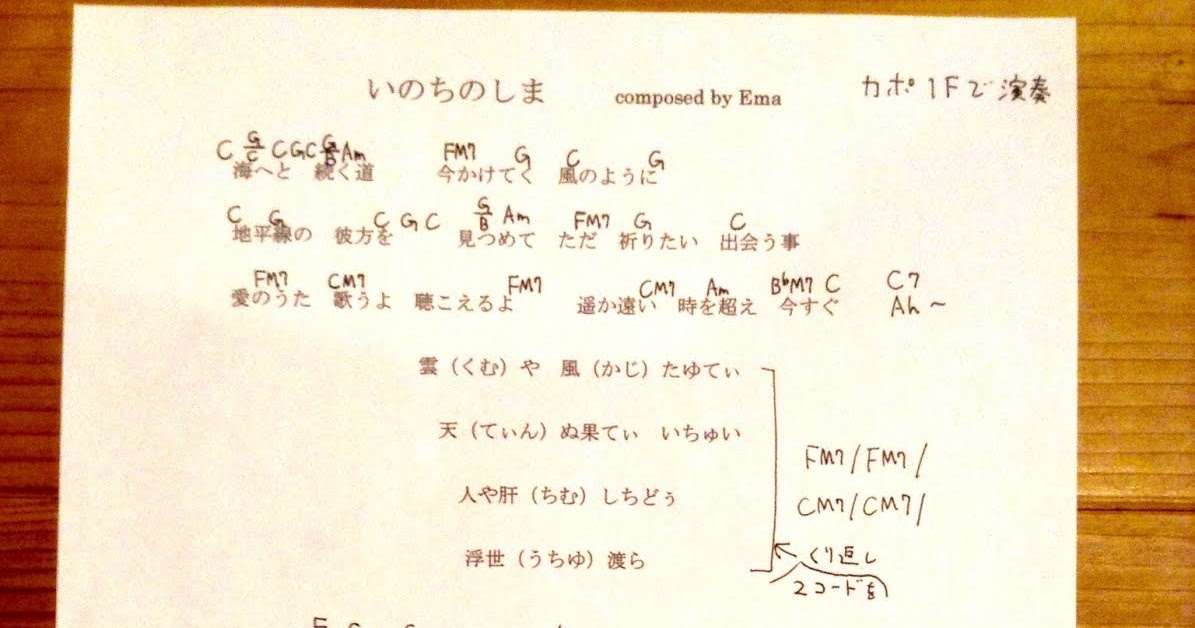 いのちのしま composed by Ema カポ 1Fで演奏
C G/C C G C G/B Am FM7 G C G
海へと 続く道 今かけてく 風のように
C G C G C G/B Am FM7 G C
地平線の 彼方を 見つめて ただ 祈りたい 出会う事
FM7 CM7 FM7 CM7 Am B♭M7 C C7
愛のうた 歌うよ 聴こえるよ 遥か遠い 時を超え 今すぐ Ah~
雲（くむ）や 風（かじ）たゆてぃ
天（てぃん）ぬ果てぃ いちゅい
FM7/FM7/
人や肝（ちむ）しちどぅ
CM7/CM7/
浮世（うちゆ）渡ら
くり返し
2コードを